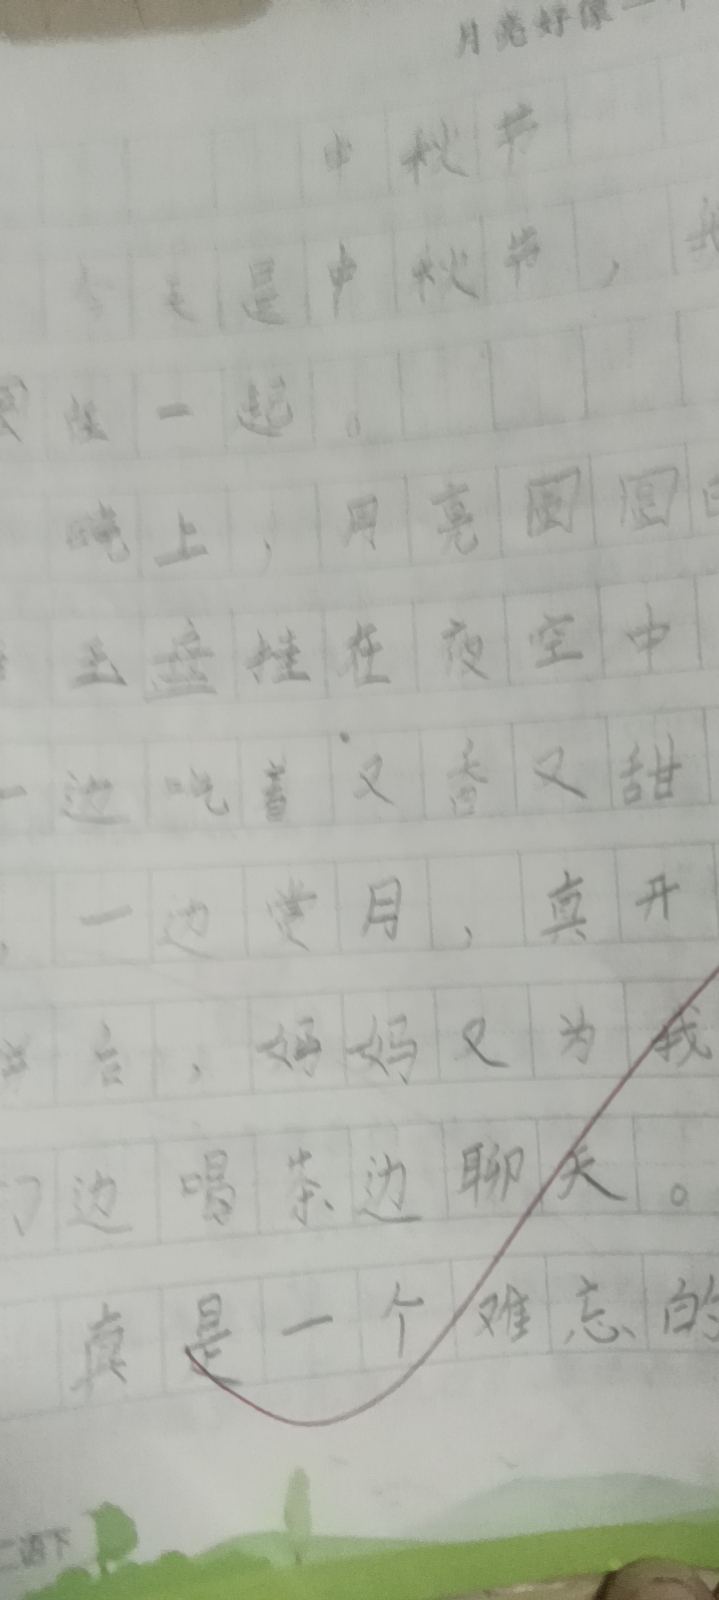 月亮好像一
中秋节
今天是中秋节，我
在一起。
晚上，月亮圆圆
玉盘挂在夜空中
一边吃着又香又甜
，一边赏月，真开
，妈妈又为我
们边喝茶边聊天。
真是一个难忘的
二语下